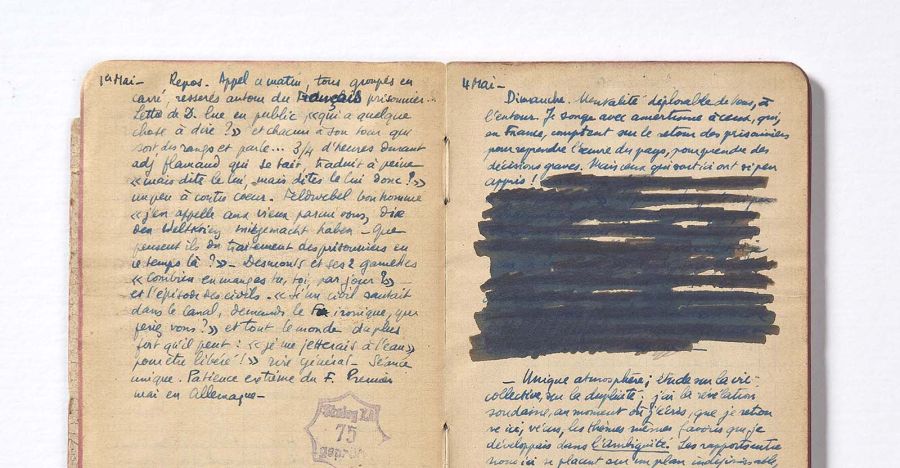 1er Mai – Repos. Appel a matin, tous groupés en
carré, resserés autour du Français prisonnier...
Lettre de D. lue en public « qui a quelque
chose à dire ? » et chacun à son tour qui
sort des rangs et parle... 3/4 d'heures durant
adj flamand qui se tait, traduit à peine
« mais dites le lui, mais dites le lui donc ? »
un peu à contre coeur. Feldwebel bon homme
« j'en appelle aux vieux parmi vous, die
den Weltkrieg mitgemacht haben – que
pensent ils du traitement des prisonniers en
ce temps là ? » – Desmonts et ses 2 gamelles
« Combien en manges tu, toi, par jour ? » –
et l'épisode des civils. « Si un civil sautait
dans le canal, demande le ironique, que
feriez vous ? » et tout le monde du plus
fort qu'il peut : « je me jetterais à l'eau »
pour être libéré ! » rire général – Séance
unique. Patience extrême du F. Premier
mai en Allemagne –
Stalag
75
geprüft
4 Mai –
Dimanche. Mentalité déplorable de tous, à
l'entour. Je songe avec amertume à ceux, qui,
en France, comptent sur le retour des prisonniers
pour reprendre l'œuvre du pays, pour prendre des
décisions graves. Mais ceux qui sont ici ont si peu
appris !
– Unique atmosphère ; étude sur la vie
collective, sur la duplicité : j'ai la révélation
soudaine, au moment où j'écris, que je retrouve
ici, vécus, les thèmes mêmes favoris que je
développais dans l'Ambiguïté. Les rapports entre
nous ici se placent sur un plan indéfinissable,